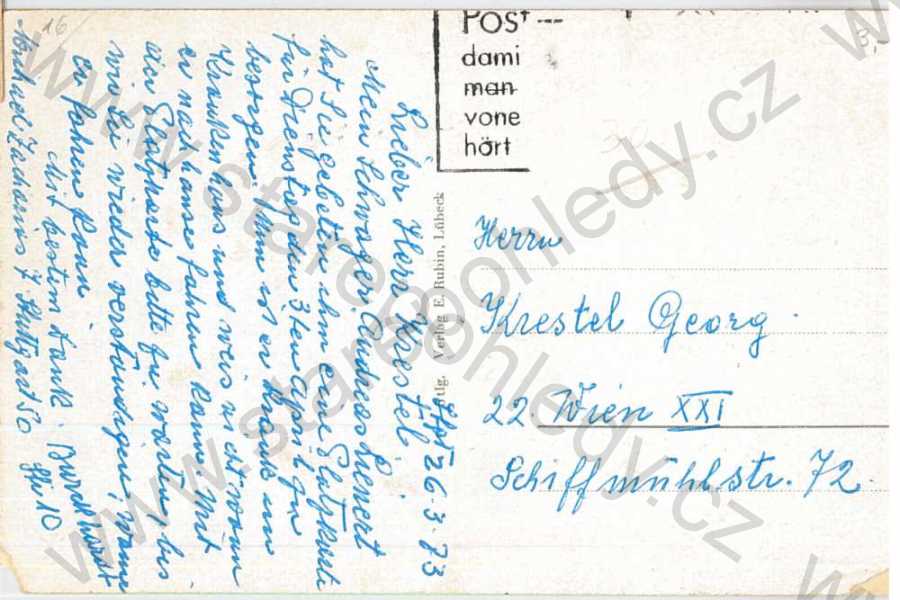 16
Post
dami
man
vone
hört
Verlag E. Rubin, Lübeck
Stgt 26-3-73
Lieber Herr Krestel,
Mein Schwager Andreas Lienert
hat Sie gebeten ihm eine Platzkarte
für Dienstag den 3ten April zu
besorgen. Nun ist er krank im
Krankenhaus und weis nicht wann
er nach hause fahren kann. Mit
der Platzkarte bitte zu warten, bis
wir Sie wieder verständigen, wann
er fahren kann.
Mit bestem Dank.
7 Stuttgart 50
Herrn
Krestel Georg.
22. Wien XXI
Schiffmühlstr. 72.
www.staropohledy.cz